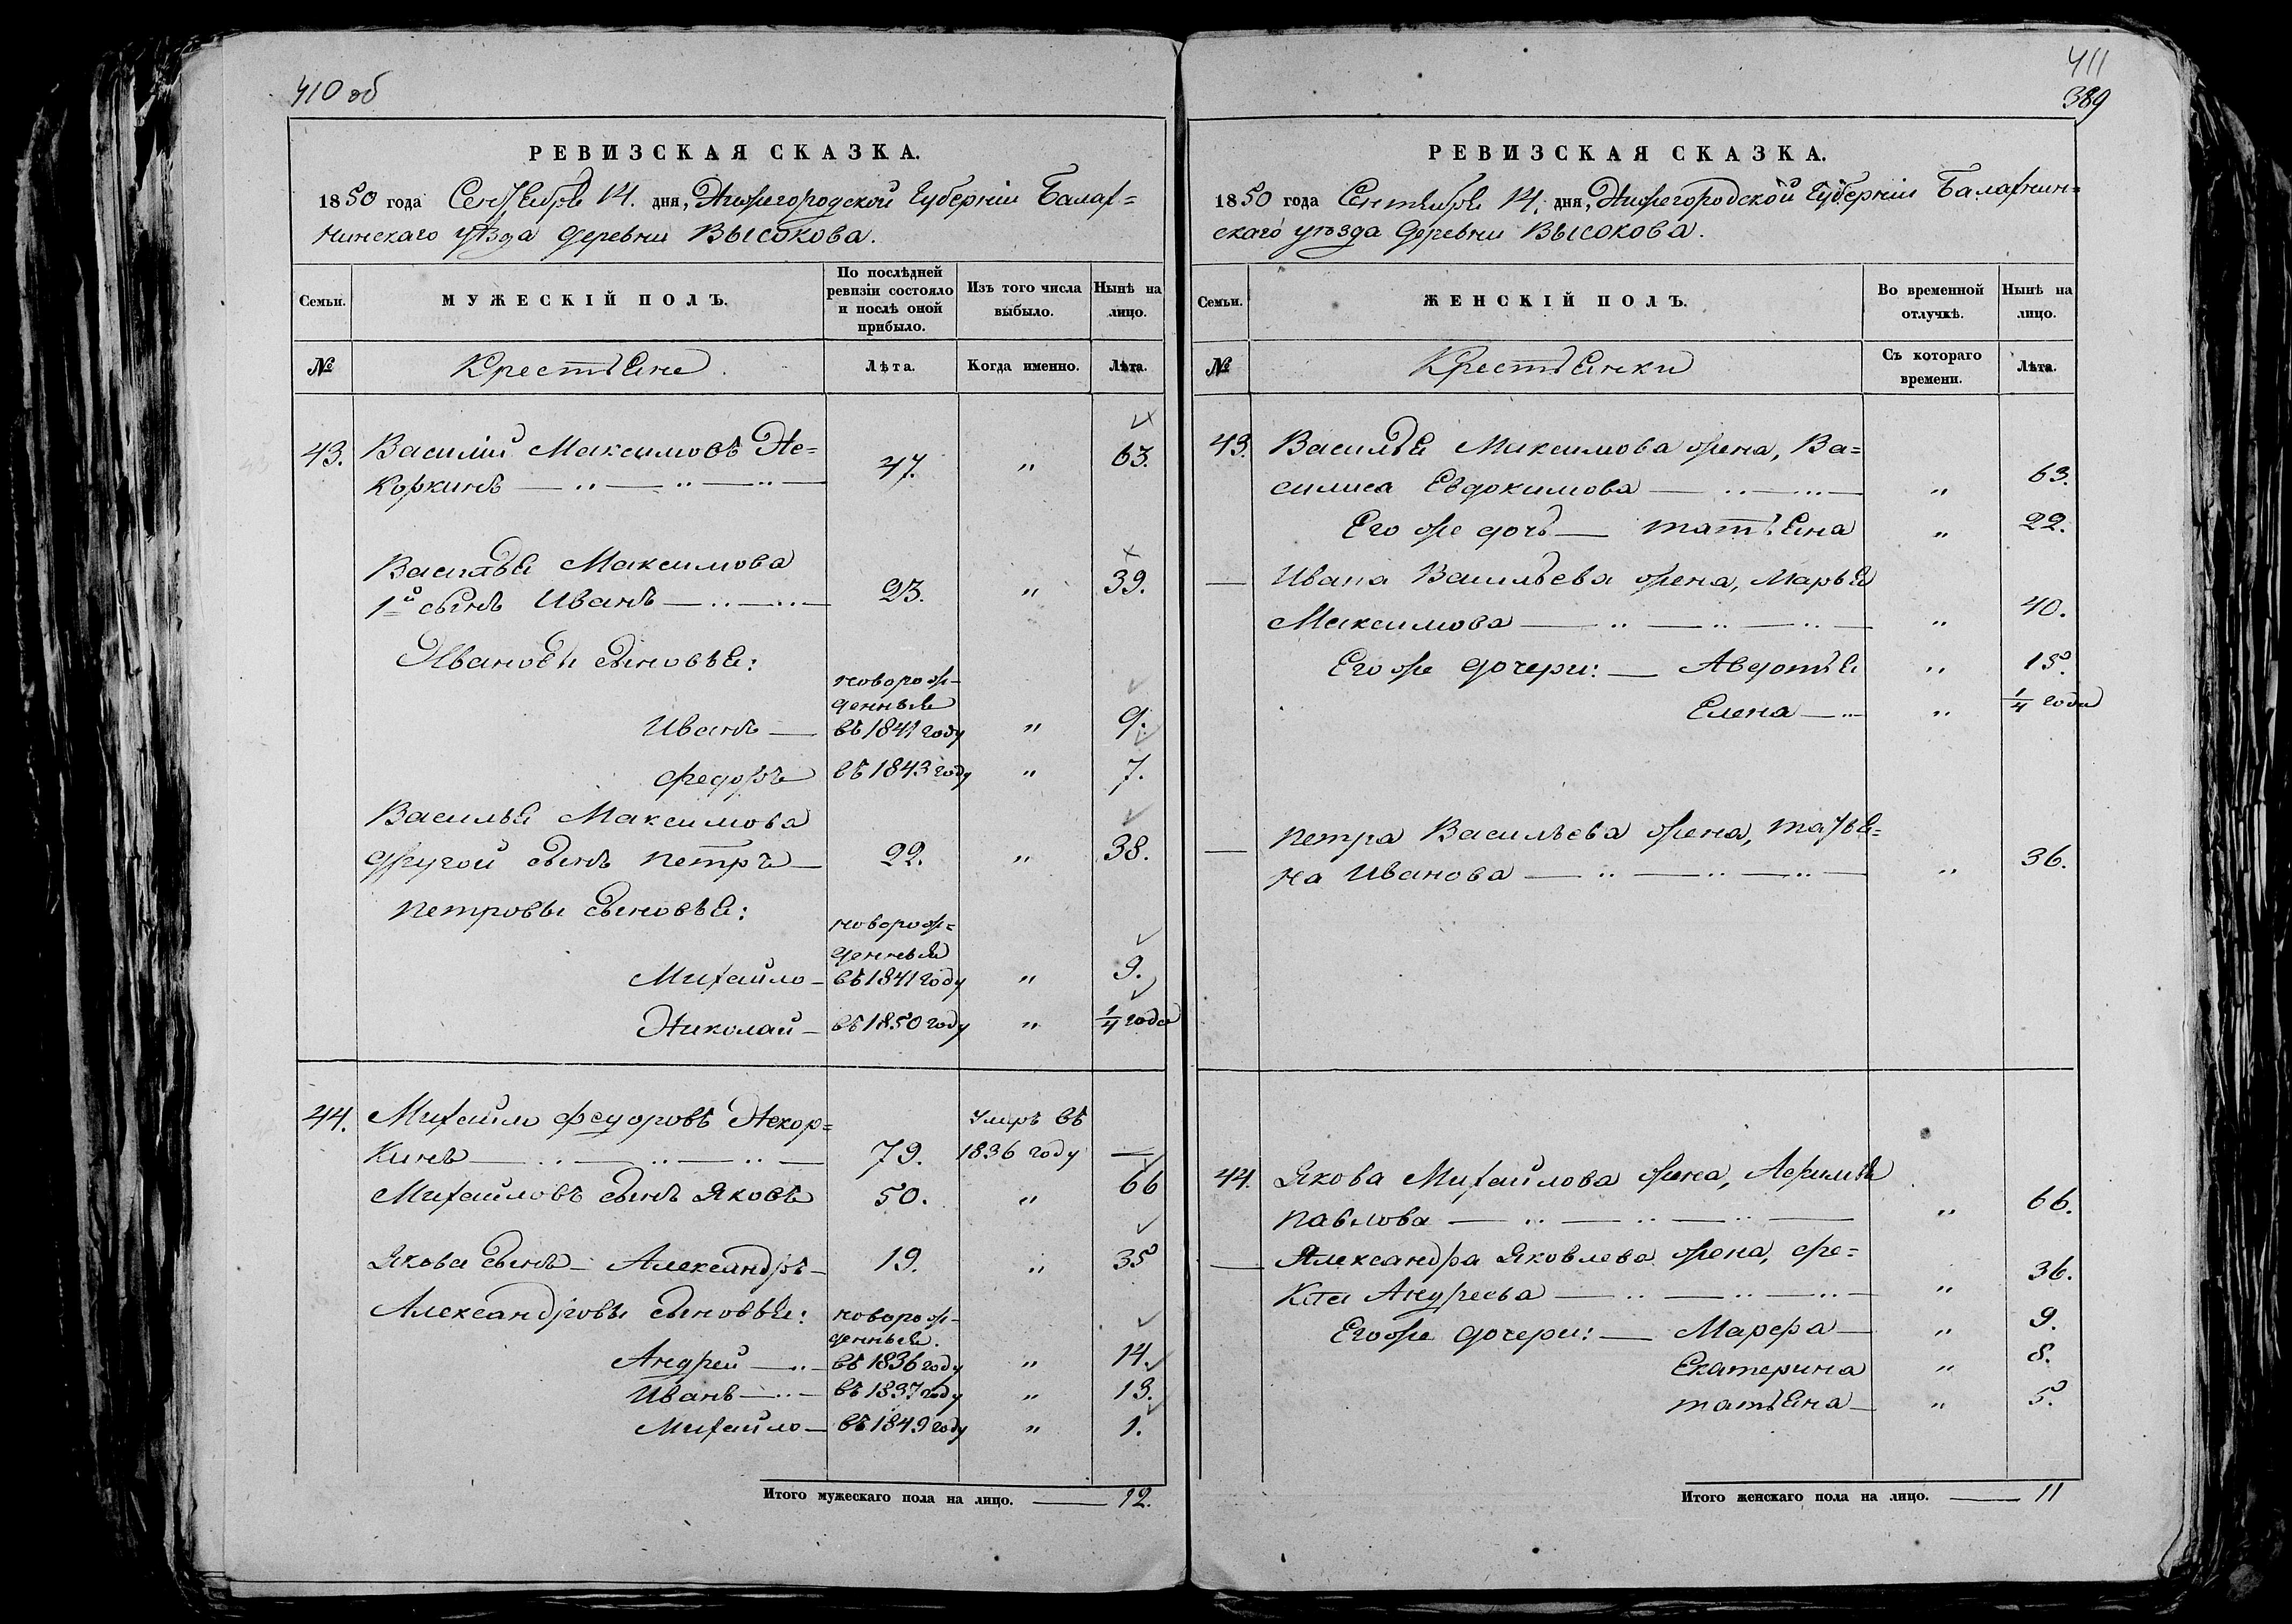 410 об
РЕВИЗСКАЯ СКАЗКА.
1850 года Сентября 14. дня, Нижегородской Губерніи Балах=
нинскаго уѣзда деревни Высокова.
Семьи.
МУЖЕСКІЙ ПОЛЪ.
По послѣдней
ревизіи состояло
и послѣ оной
прибыло.
Изъ того числа
выбыло.
Нынѣ на
лицо.
№
Крестьяне.
Лѣта.
Когда именно.
Лѣта.
43. Василій Максимовъ Не=
коркинъ 47. " 63.
Василья Максимова
1й сынъ Иванъ 23. " 39.
Ивановы сыновья:
новорож-
денные
Иванъ въ 1841 году " 9.
Федоръ въ 1843 году " 7.
Василья Максимова
другой сынъ Петръ 22. " 38.
Петровы сыновья:
новорож=
денные
Михайло въ 1841 году " 9.
Николай въ 1850 году " 1/4 года
44. Михайло Федоровъ Некор=
кинъ 79. Умръ въ
1836 году —
Михайловъ сынъ Яковъ 50. " 66
Якова сынъ Александръ 19. " 35
Александровы сыновья: новорож-
денные.
Андрей въ 1836 году " 14.
Иванъ въ 1837 году " 13.
Михайло въ 1849 году " 1.
Итого мужескаго пола на лицо. 12.
411
389
РЕВИЗСКАЯ СКАЗКА.
1850 года Сентября 14. дня, Нижегородской Губерніи Балахнин=
скаго уѣзда деревни Высокова.
Семьи.
ЖЕНСКІЙ ПОЛЪ.
Во временной
отлучкѣ.
Нынѣ на
лицо.
№
Крестьянки
Съ котораго
времени.
Лѣта.
43. Василья Максимова жена, Ва=
силиса Евдокимова " 63.
Его же дочь — Татьяна " 22.
— Ивана Васильева жена, Марья
Максимова " 40.
Его же дочери: — Авдотья " 15.
Елена " 1/4 года
— Петра Васильева жена, Татья=
на Иванова " 36.
44. Якова Михайлова жена, Афимья
Павлова " 66.
— Александра Яковлева жена, Фе=
кла Андреева " 36.
Его же дочери: — Марфа " 9.
Екатерина " 8.
Татьяна " 5.
Итого женскаго пола на лицо. 11